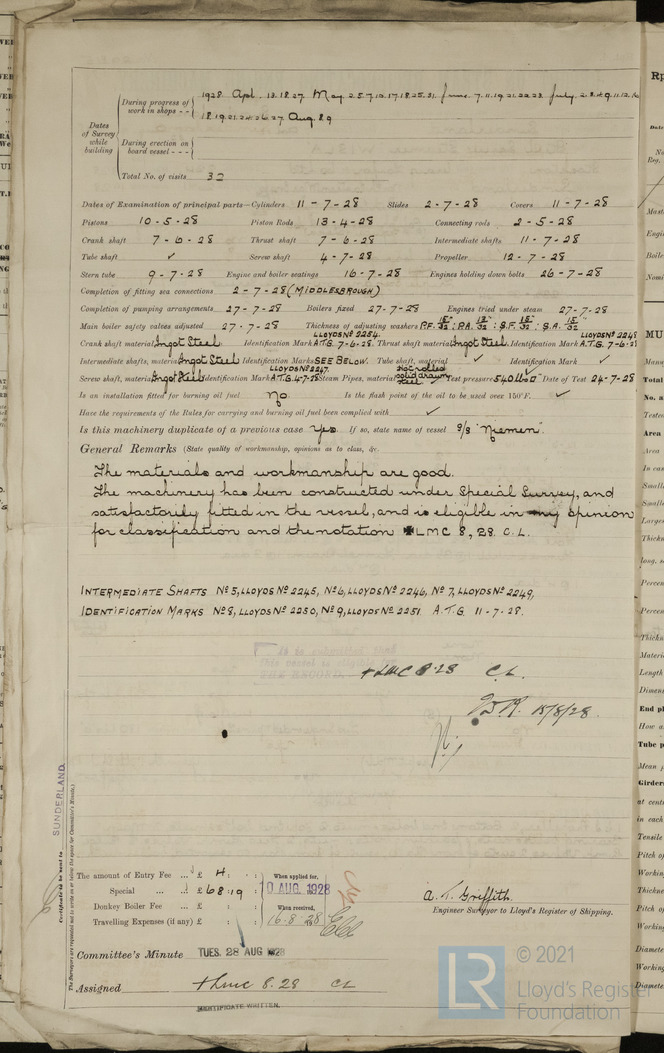 During progress of work in shops - - 1928 Apl. 13.18.27. May 2.5.7.10.17.18.25.31. June 7.11.19.21.22.28. July 2.3.4.9.11.12.16
18.19.21.24.26.27. Aug 8.9
Dates of Survey while building
During erection on board vessel - - -
Total No. of visits 32
Dates of Examination of principal parts—Cylinders 11-7-28 Slides 2-7-28 Covers 11-7-28
Pistons 10-5-28 Piston Rods 13-4-28 Connecting rods 2-5-28
Crank shaft 7-6-28 Thrust shaft 7-6-28 Intermediate shafts 11-7-28
Tube shaft ✓ Screw shaft 4-7-28 Propeller 12-7-28
Stern tube 9-7-28 Engine and boiler seatings 16-7-28 Engines holding down bolts 26-7-28
Completion of fitting sea connections 2-7-28 (MIDDLESBROUGH)
Completion of pumping arrangements 27-7-28 Boilers fixed 27-7-28 Engines tried under steam 27-7-28
Main boiler safety valves adjusted 27-7-28 Thickness of adjusting washers P.F. 15/32" : P.A. 13/32" : S.F. 15/32" : S.A. 15/32"
Crank shaft material Ingot Steel Identification Mark LLOYDS Nº 2254. A.T.G. 7-6-28. Thrust shaft material Ingot Steel. Identification Mark LLOYDS Nº 2248 A.T.G. 7-6-28
Intermediate shafts, material Ingot Steel Identification Marks SEE BELOW. Tube shaft, material ✓ Identification Mark ✓
Screw shaft, material Ingot Steel Identification Mark LLOYDS Nº 2247. A.T.G. 4-7-28 Steam Pipes, material Hot rolled solid drawn steel Test pressure 540 lbs □" Date of Test 24-7-28
Is an installation fitted for burning oil fuel No. Is the flash point of the oil to be used over 150°F. ✓
Have the requirements of the Rules for carrying and burning oil fuel been complied with ✓
Is this machinery duplicate of a previous case Yes. If so, state name of vessel S/S "Niemen".
General Remarks (State quality of workmanship, opinions as to class, &c.
The materials and workmanship are good.
The machinery has been constructed under Special Survey, and
satisfactorily fitted in the vessel, and is eligible in my opinion
for classification and the notation ✠ LMC 8, 28. C.L.
INTERMEDIATE SHAFTS Nº 5, LLOYDS Nº 2245, Nº 6, LLOYDS Nº 2246, Nº 7, LLOYDS Nº 2249,
IDENTIFICATION MARKS Nº 8, LLOYDS Nº 2250, Nº 9, LLOYDS Nº 2251. A.T.G. 11-7-28.
It is submitted that
this vessel is eligible
THE RECORD. + LMC 8.28 C.L.
15/8/28.
SUNDERLAND
Certificate to be sent to
(The Surveyors are requested not to write on or below the space for Committee's Minute.)
The amount of Entry Fee ... £ 4 : : When applied for,
Special ... ... £ 68 : 19 : 10 AUG. 1928
Donkey Boiler Fee ... £ : : When received,
Travelling Expenses (if any) £ : : 16.8.28
A. T. Griffith.
Engineer Surveyor to Lloyd's Register of Shipping.
Committee's Minute TUES. 28 AUG 1928
Assigned + Lmc 8.28 CL
CERTIFICATE WRITTEN.
LR
© 2021
Lloyd's Register
Foundation